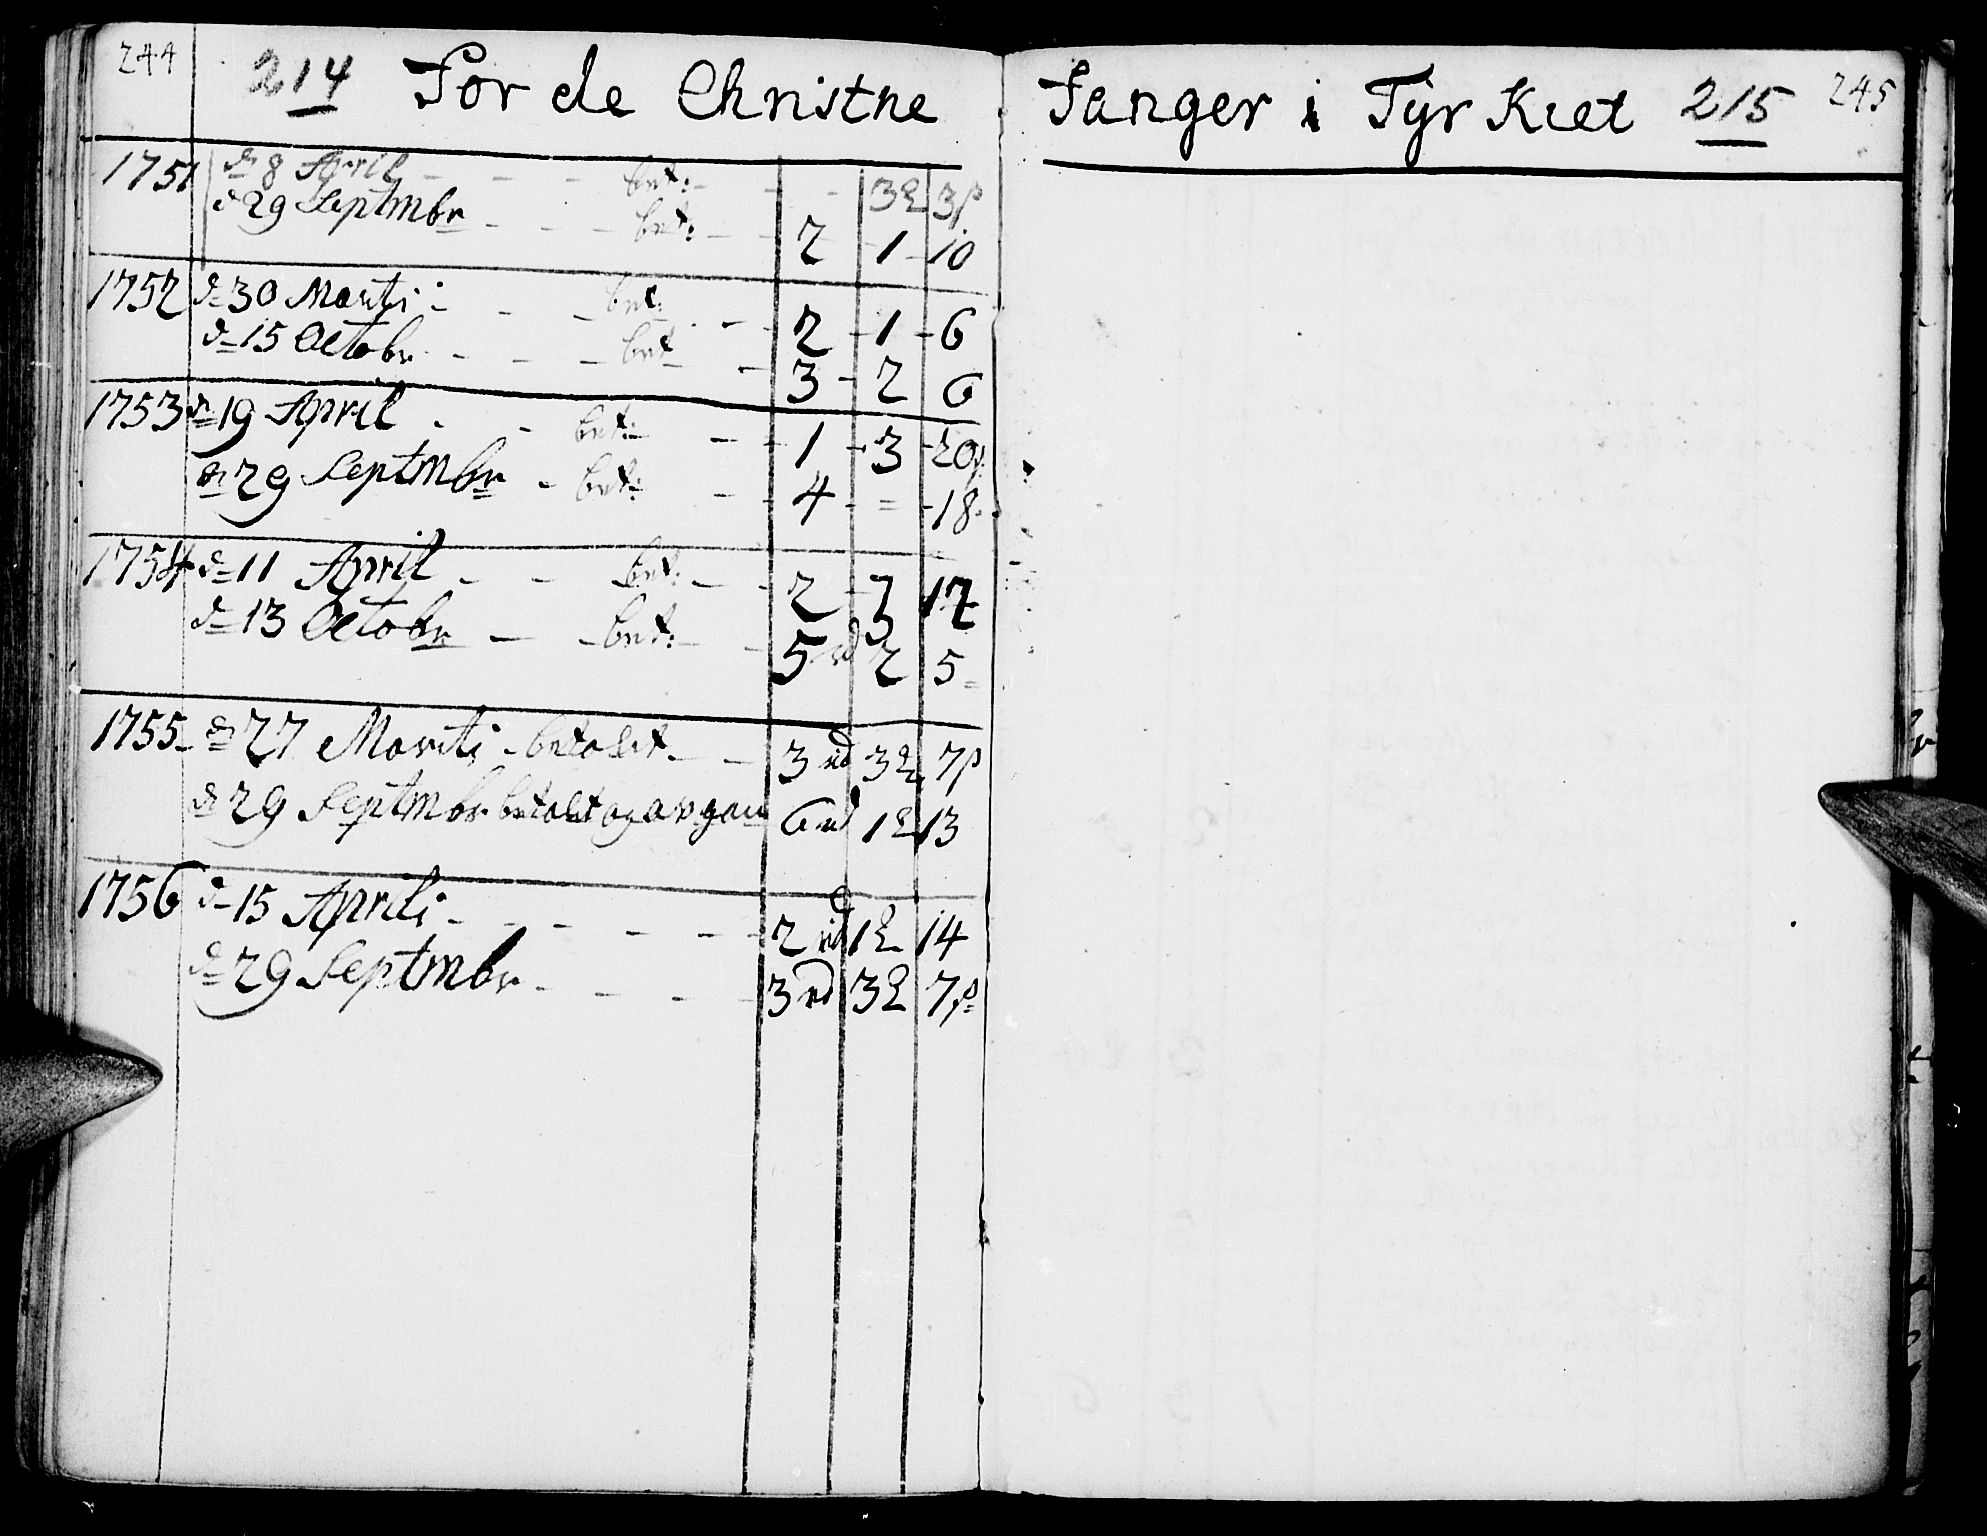 244 214 For de Christne Fanger i Tyrkiet 215 245
1751 d 8 April - - - bet: - - - 3 3
d 29 Septmbr - - - bet: - - 2 - 1 - 10
1752 d 30 Marti - - - bet: - - 2 - 1 - 6
d 15 Octobr - - - bet - - 3 - 2 6
1753 d 19 April - - bet: - - 1 - 3 - 20
d 29 Septmbr - bet: - - 4 - = - 18
1754 d 11 April - - bet: - - 2 - 3 12
d 13 Octobr - - bet: - - 5 rd 2 5
1755 d 27 Marti - betalt - - 3 rd 3 7
d 29 Septmbr betalt og 6 rd 1 13
1756 d 15 Aprili - - - - - 2 rd 1 14
d 29 Septmbr - - - - 3 rd 3 7